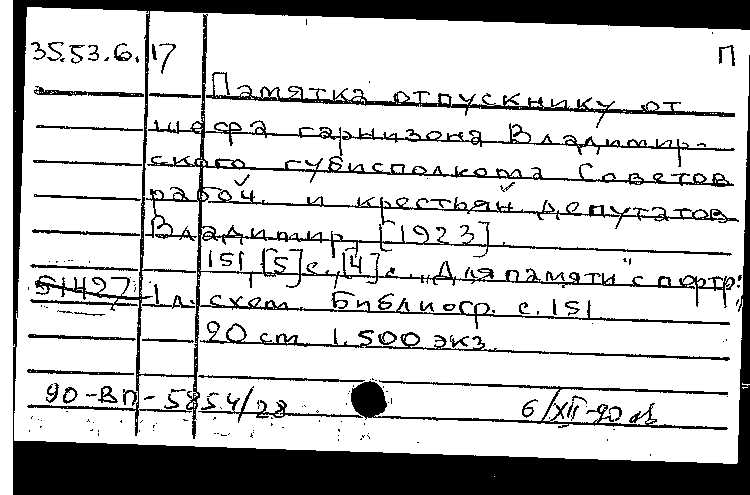 35.53.6.17 П
Памятка отпускнику от
шефа гарнизона Владимир-
ского губисполкома Советов
рабоч. и крестьян. депутатов
Владимир, [1923].
151, [5] с., [4] с. „Для памяти" с портр.,
51427 1 л. схем. Библиогр. с. 151
20 см. 1.500 экз.
90-ВП-5854/28 6/XII-90